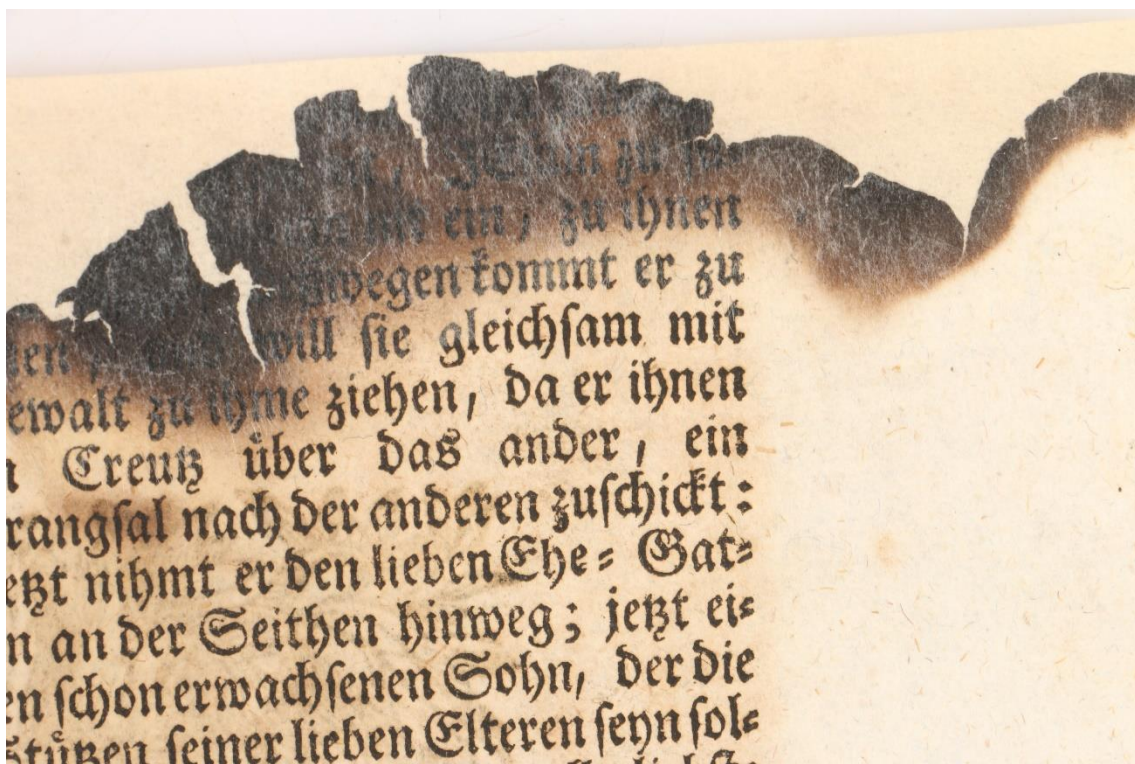 zu
ein, zu ihnen
kommt er zu
will sie gleichsam mit
ewalt zu ihme ziehen, da er ihnen
Creutz uͤber das ander, ein
rangsal nach der anderen zuschickt:
etzt nihmt er den lieben Ehe⸗Gat⸗
n an der Seithen hinweg; jetzt ei⸗
en schon erwachsenen Sohn, der die
Stützen seiner lieben Elteren seyn sol⸗